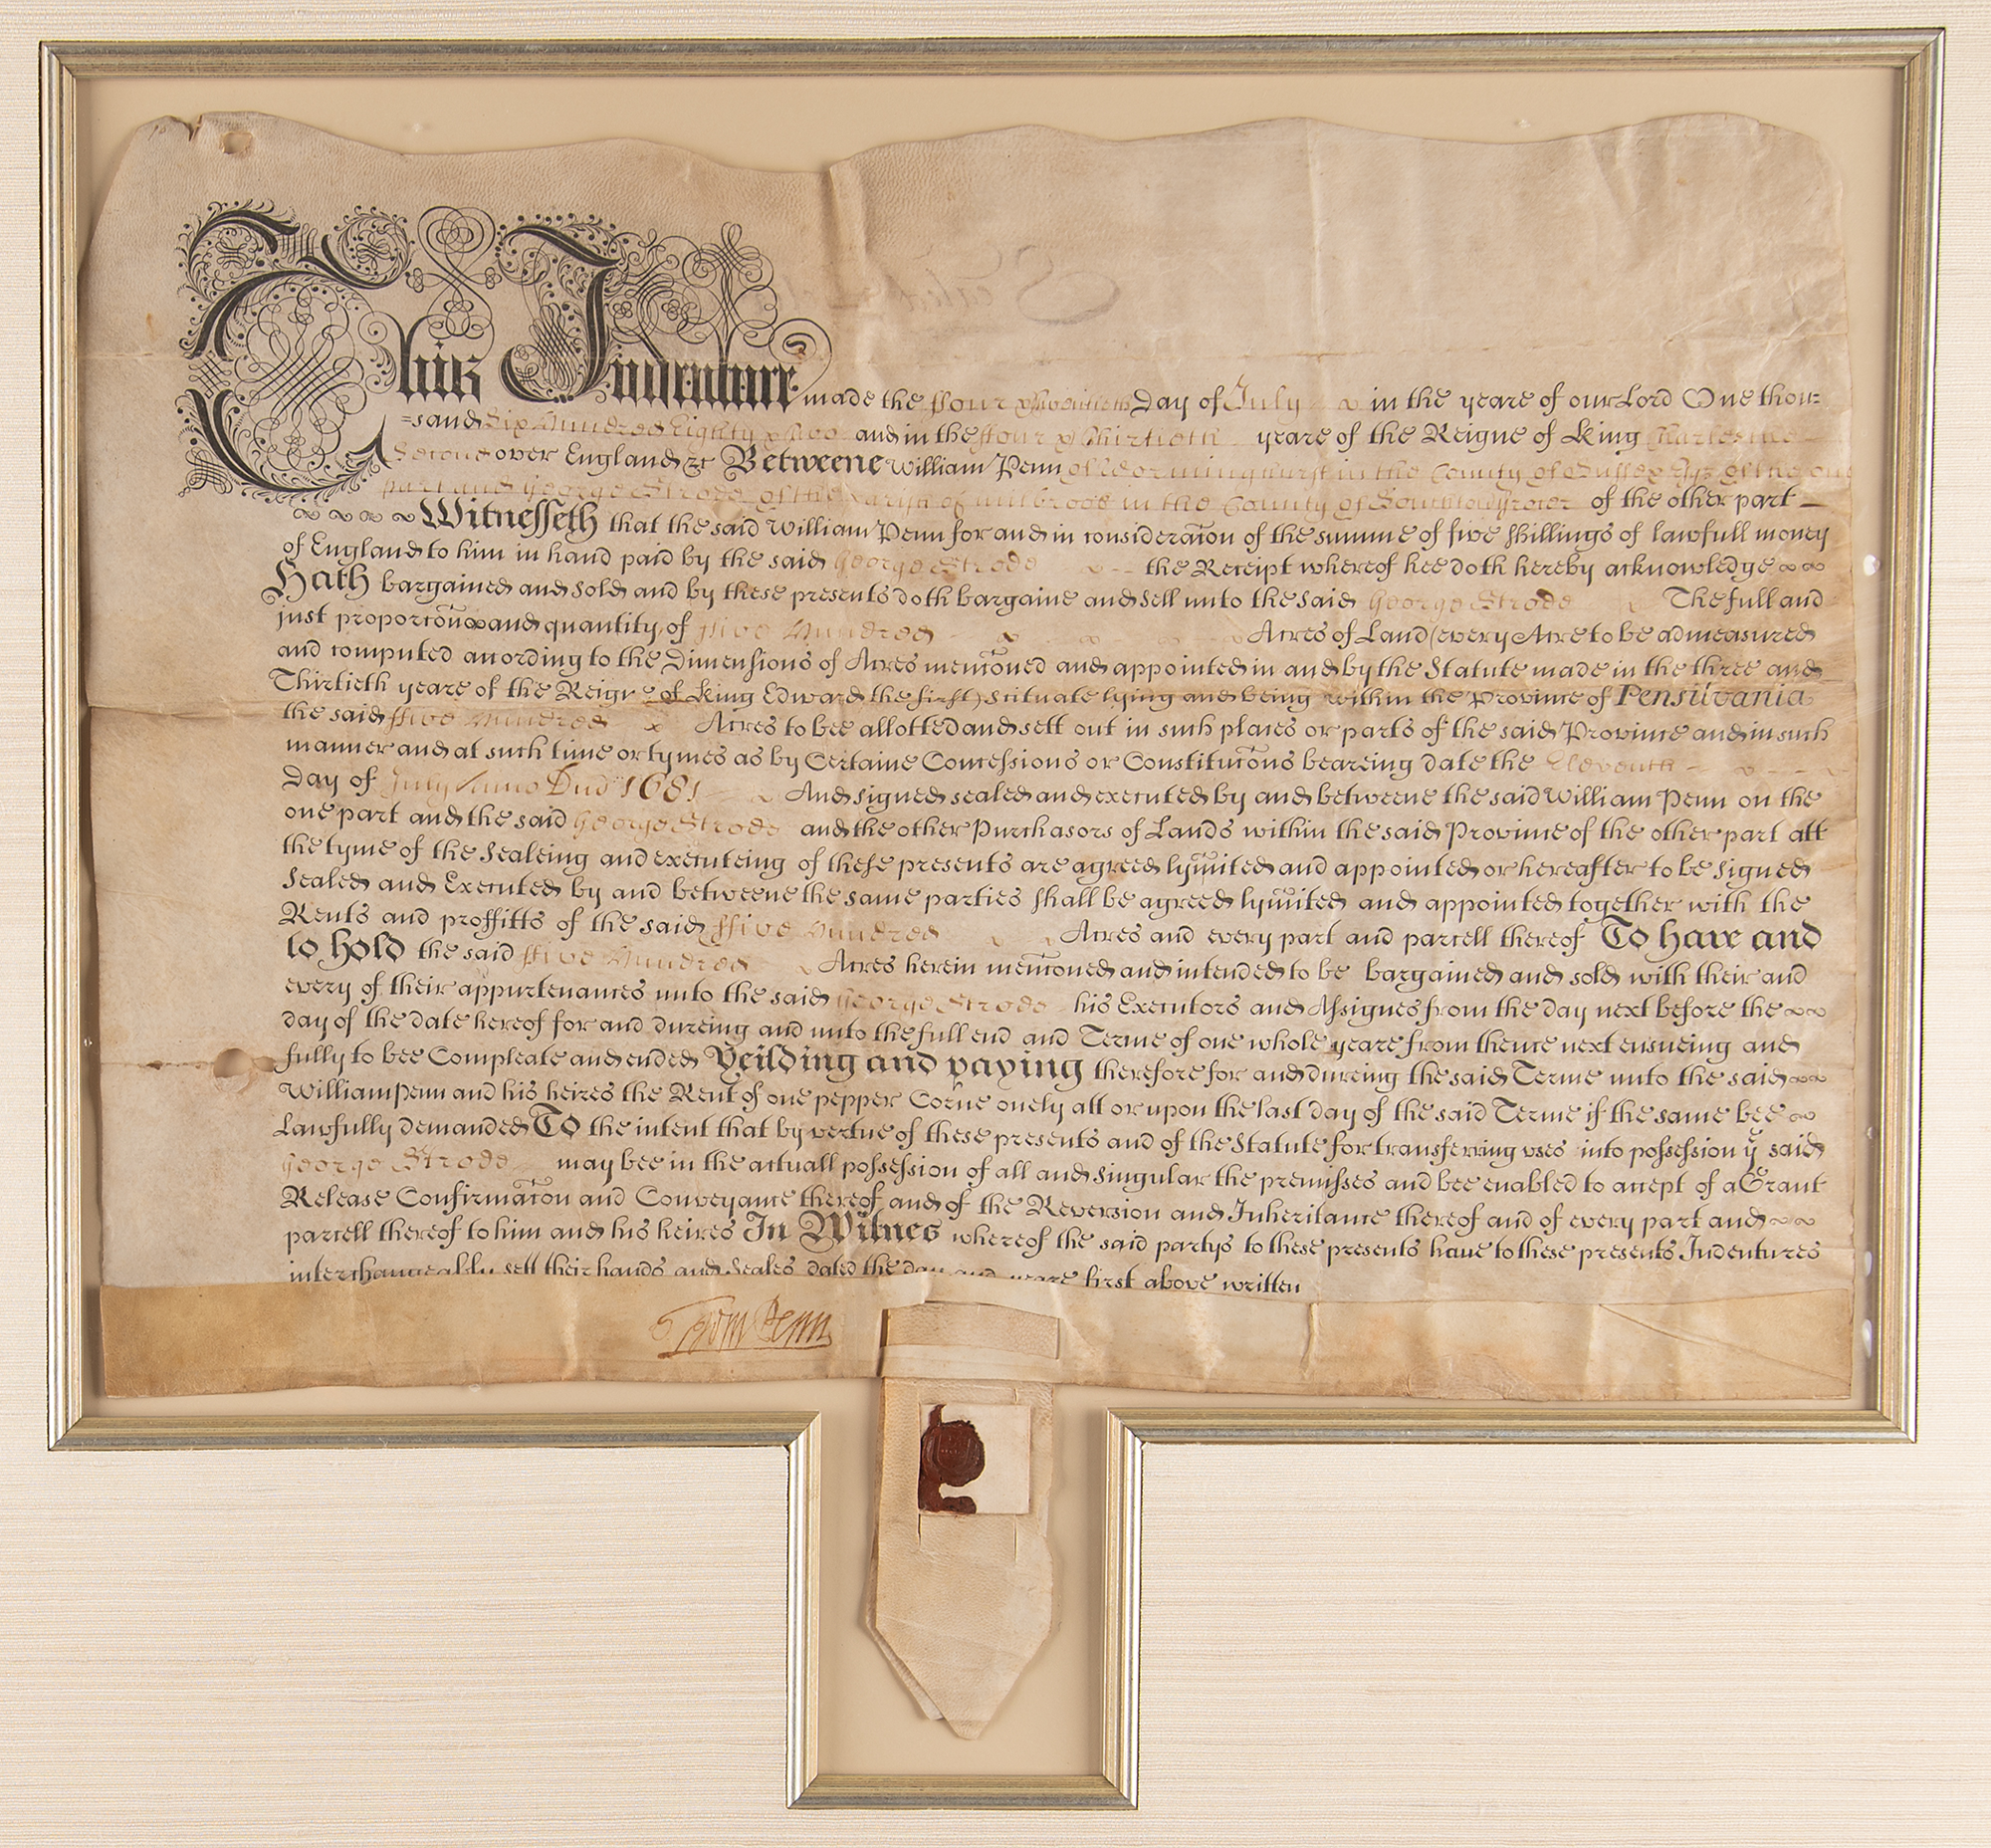 This Indenture made the ffour & Twentieth Day of July in the yeare of our Lord One thou=
=sand Six Hundred Eighty & Two and in the ffour & Thirtieth yeare of the Reigne of King Charles the
Second over England &c Betweene William Penn of Worminghurst in the County of Sussex Esqr of the one
part and George Strode of the Parish of in the County of of the other part
Witnesseth that the said William Penn for and in consideracon of the summe of five shillings of lawfull money
of England to him in hand paid by the said George Strode the Receipt whereof hee doth hereby acknowledge
Hath bargained and sold and by these presents doth bargaine and sell unto the said George Strode The full and
just proporcon and quantity of ffive Hundred Acres of Land (every Acre to be admeasured
and computed according to the Dimensions of Acres menconed and appointed in and by the Statute made in the three and
Thirtieth yeare of the Reigne of King Edward the first) scituate lying and being within the Province of Pensilvania
the said ffive Hundred Acres to bee allotted and sett out in such places or parts of the said Province and in such
manner and at such time or tymes as by Certaine Concessions or Constitucons beareing date the Eleventh
Day of July Anno Dni 1681 And signed sealed and executed by and betweene the said William Penn on the
one part and the said George Strode and the other Purchasors of Lands within the said Province of the other part att
the tyme of the Sealeing and executeing of these presents are agreed lymited and appointed or hereafter to be signed
Sealed and Executed by and betweene the same parties shall be agreed lymited and appointed together with the
Rents and proffitts of the said ffive Hundred Acres and every part and parcell thereof To have and
to hold the said ffive Hundred Acres herein menconed and intended to be bargained and sold with their and
every of their appurtenances unto the said George Strode his Executors and Assignes from the day next before the
day of the date hereof for and dureing and unto the full end and Terme of one whole yeare from thence next ensueing and
fully to bee Compleate and ended Yeilding and paying therefore for and dureing the said Terme unto the said
William Penn and his heires the Rent of one pepper Corne onely att or upon the last day of the said Terme if the same bee
Lawfully demanded To the intent that by vertue of these presents and of the Statute for transferring uses into possession ye said
George Strode may bee in the actuall possession of all and singular the premisses and bee enabled to accept of a Grant
Release Confirmacon and Conveyance thereof and of the Reversion and Inheritance thereof and of every part and
parcell thereof to him and his heires In Witnes whereof the said partys to these presents have to these presents Indentures
interchangeably sett their hands and Seales dated the day and yeare first above written
Wm Penn